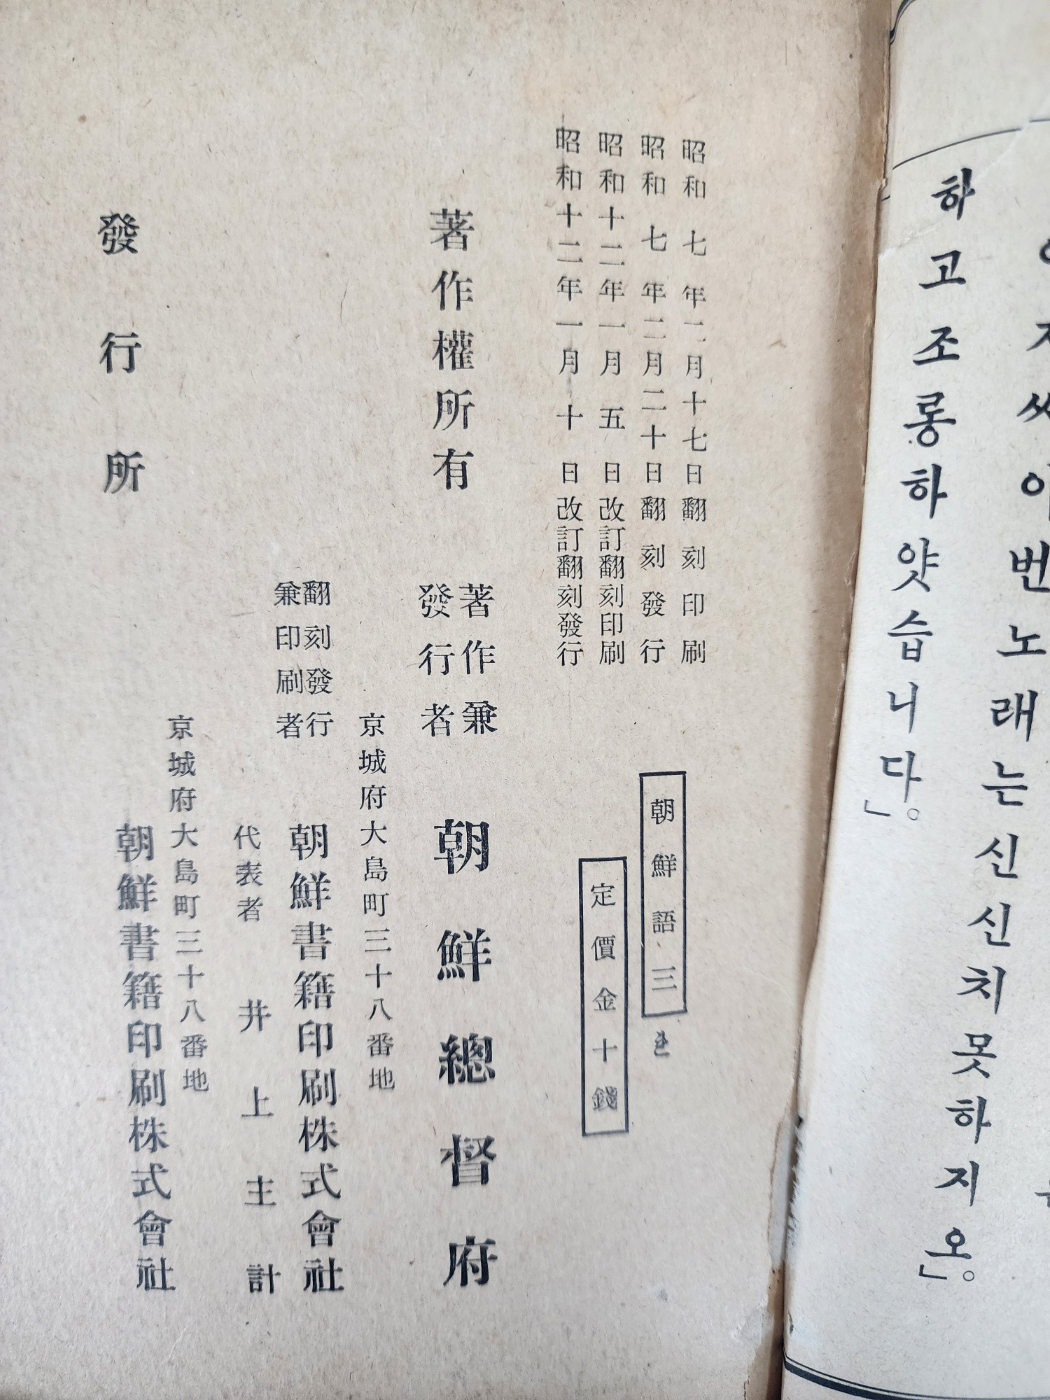 이번노래는신신치못하지오」。
하고조롱하얏습니다」。
昭和七年二月十七日翻刻印刷
昭和七年二月二十日翻刻發行
昭和十二年一月五日改訂翻刻印刷
昭和十二年一月十日改訂翻刻發行
朝鮮語三
定價金十錢
著作權所有
著作兼
發行者
朝鮮總督府
京城府大島町三十八番地
翻刻發行
兼印刷者
朝鮮書籍印刷株式會社
代表者 井上主計
京城府大島町三十八番地
發行所
朝鮮書籍印刷株式會社